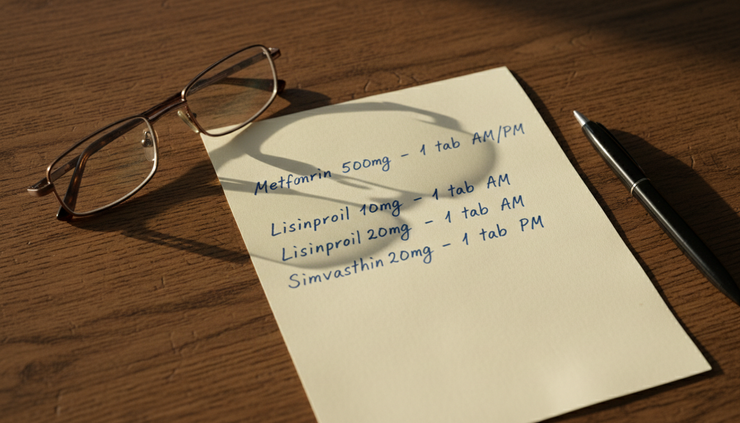 Metfonrin 500mg – 1 tab AM/PM
Lisinproil 10mg – 1 tab AM
Lisinproil 20mg – 1 tab AM
Simvasthin 20mg – 1 tab PM